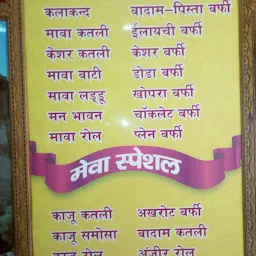 कलाकन्द बादाम-पिस्ता बर्फी
मावा कतली ईलायची बर्फी
केशर कतली केशर बर्फी
मावा बाटी डोडा बर्फी
मावा लड्डू खोपरा बर्फी
मन भावन चॉकलेट बर्फी
मावा रोल प्लेन बर्फी
मेवा स्पेशल
काजू कतली अखरोट बर्फी
काजू समोसा बादाम कतली
काजू रोल अंजीर रोल